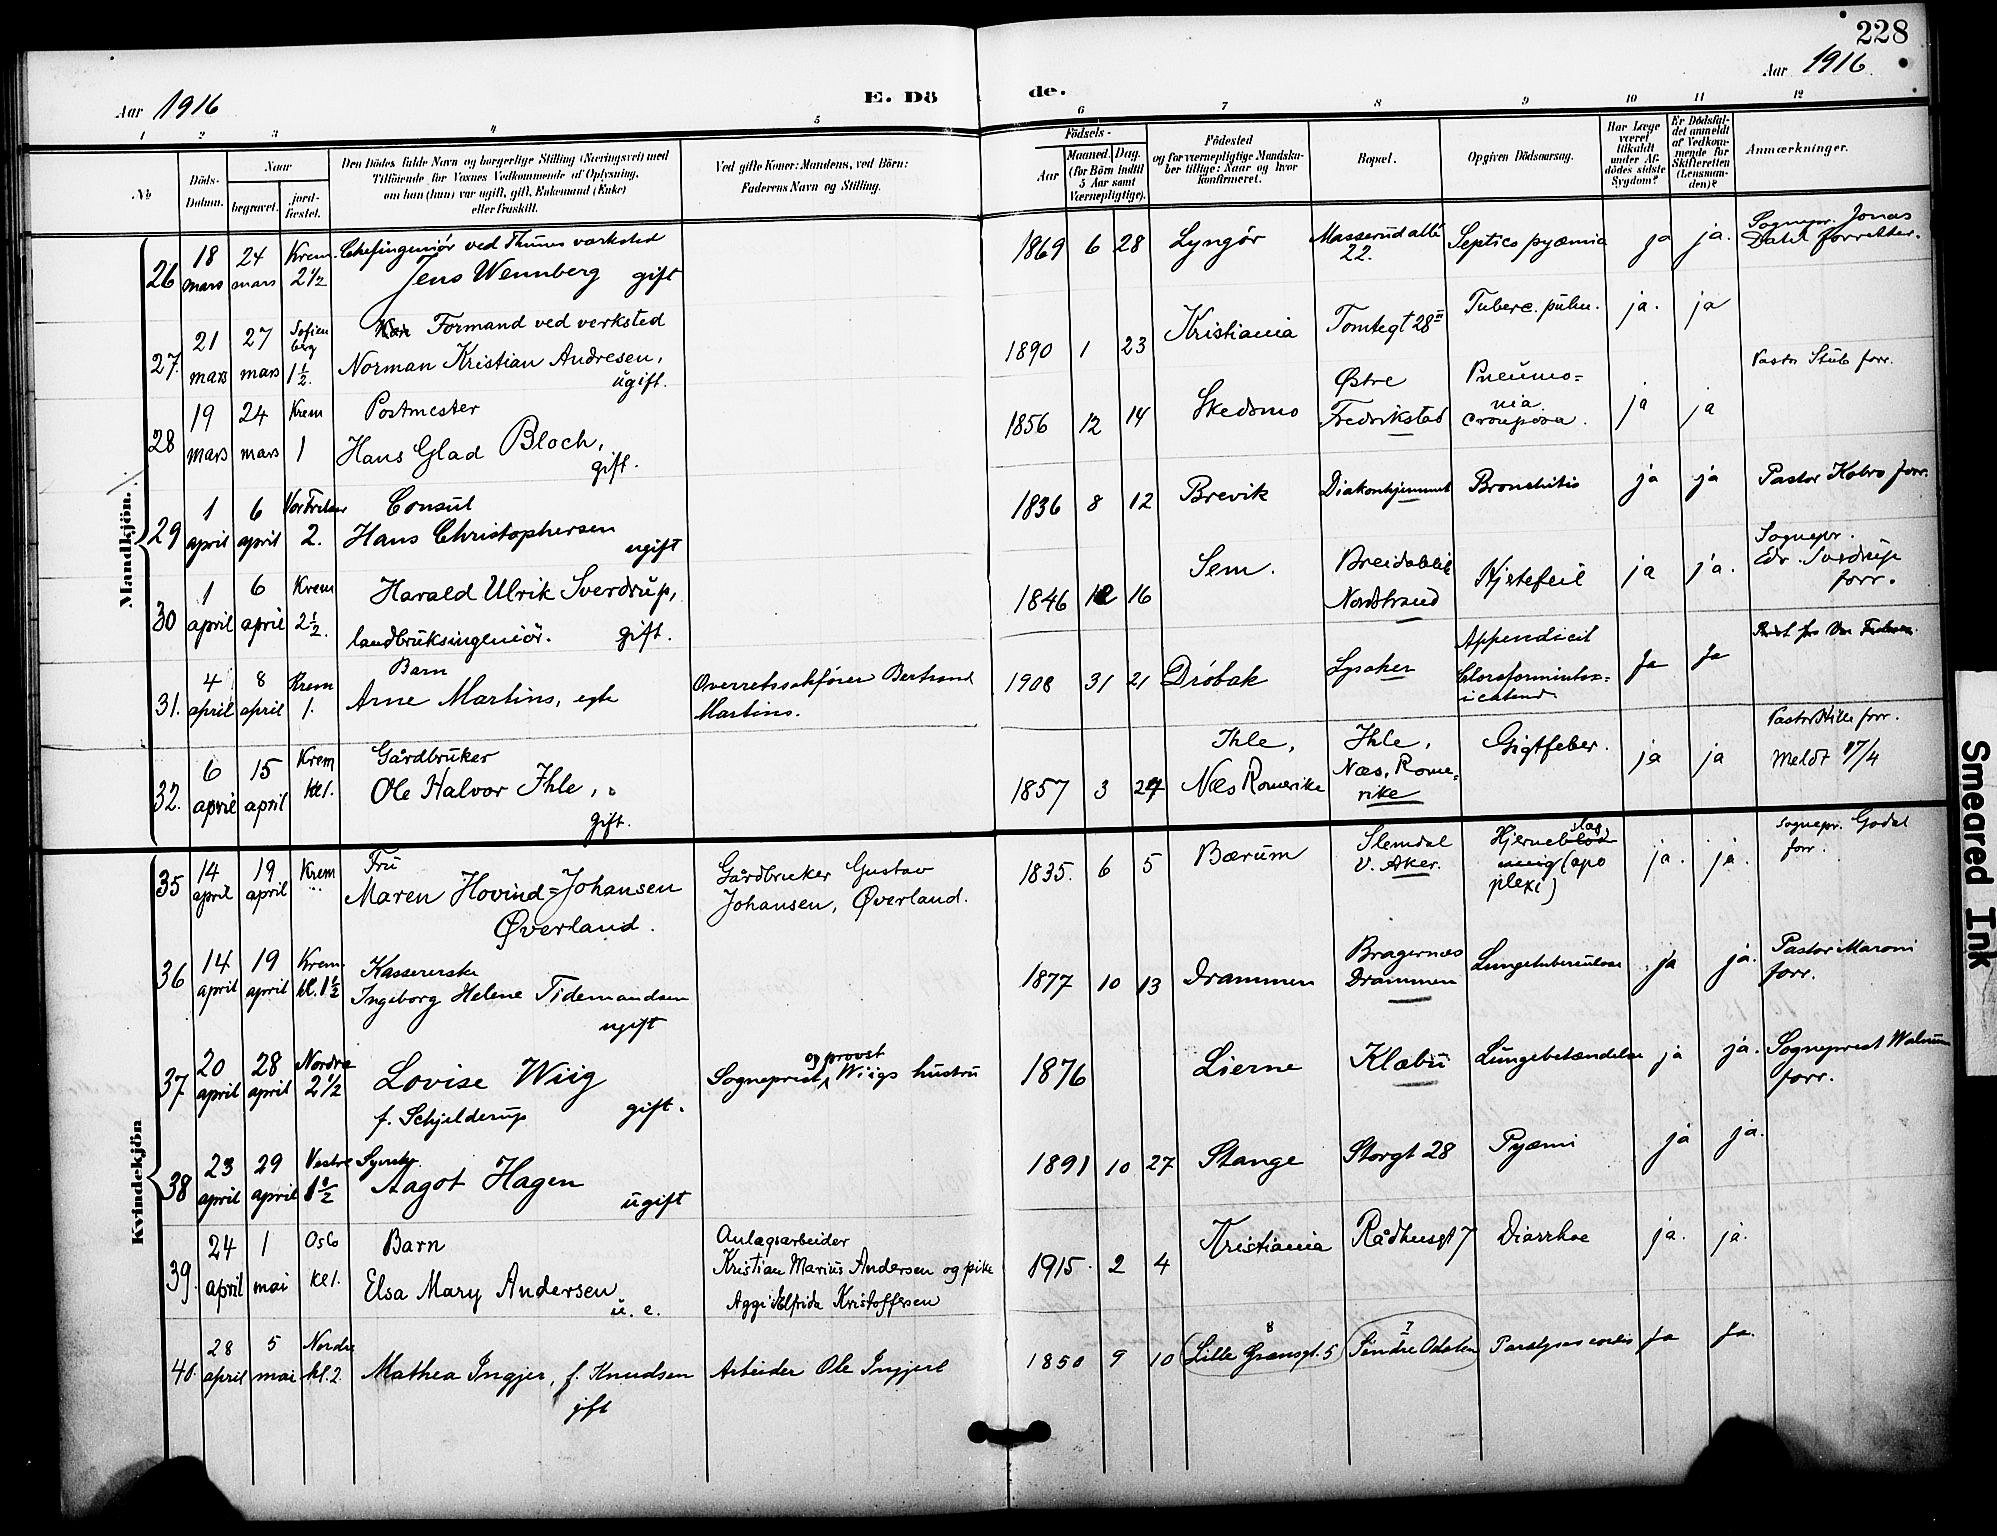 228
Aar 1916
E. Dö
de.
Aar 1916.
1 2 3 4 5 6 7 8 9 10 11 12
No
Döds-
Datum.
Naar
begravet.
jord-
fæstet.
Den Dödes fulde Navn og borgerlige Stilling (Næringsvei) med
Tilföiende for Voxnes Vedkommende af Oplysning,
om han (hun) var ugift, gift, Enkemand (Enke)
eller fraskilt.
Ved gifte Koner: Mandens, ved Börn:
Faderens Navn og Stilling.
Födsels-
Aar
Maaned. Dag.
(for Börn indtil
5 Aar samt
Værnepligtige).
Födested
og for værnepligtige Mandska-
ber tillige: Naar og hvor
konfirmeret.
Bopæl.
Opgiven Dödsaarsag.
Har Læge
været
tilkaldt
under Af-
dödes sidste
Sygdom?
Er Dödsfal-
det anmeldt
af Vedkom-
mende for
Skifteretten
(Lensman-
den)?
Anmærkninger.
Mandkjön.
26 18 mars 24 mars Krem. 2 1/2
Chefingeniör ved Thunes værksted
Jens Wennberg gift
1869 6 28 Lyngör Masserud allé 22. Septico pyæmia ja ja. Sognepr. Jonas
Dahl forretter.
27. 21 mars 27 mars Sofien
berg 1 1/2.
Formand ved verksted
Norman Kristian Andresen,
ugift.
1890 1 23 Kristiania Tomtegt 28 II Tuberc. pulm. ja. ja
28 19 mars 24 mars Krem 1
Postmester
Hans Glad Bloch,
gift.
1856 12 14 Skedsmo Østre
Fredrikstad Pneumo=
nia
crouposa. ja ja Pastor Stub forr.
29 1 april 6 april Vor Frelser 2.
Consul
Hans Christophersen
ugift
1836 8 12 Brevik Diakonhjemmet Bronchitis ja ja Pastor Kobro forr.
30 1 april 6 april Krem 2 1/2.
Harald Ulrik Sverdrup,
landbruksingeniör. gift.
1846 12 16 Sem. Breidablik
Nordstrand Hjertefeil ja ja. Sognepr.
Edv. Sverdrup
forr.
31. 4 april 8 april Krem 1.
Barn
Arne Martins, egte
Overretssakförer Bertrand
Martins.
1908 31 21 Dröbak Lysaker Appendicit
ja ja
32. 6 april 15 april Krem kl 1.
Gårdbruker
Ole Halvor Ihle,
gift.
1857 3 24 Ihle,
Næs Romerike Ihle,
Næs, Rome-
rike Gigtfeber. ja ja forr.
Meldt 17/4
Kvindekjön
35 14 april 19 april Krem
Fru
Maren Hovind=Johansen
Øverland.
Gårdbruker Gustav
Johansen, Øverland.
1835. 6 5 Bærum Slemdal
V. Aker. Hjerneblöd
slag
ning (apo
plexi) ja. ja. Sognepr. Godal
forr.
36 14 april 19 april Krem. kl. 1 1/2
Kassererske
Ingeborg Helene Tidemandsen
ugift
1877 10 13 Drammen Bragernes
Drammen Lungetuberculose ja ja. Pastor Maroni
forr.
37 20 april 28 april Nordre 2 1/2
Lovise Wiig
f. Schjelderup gift.
og provst
Sogneprest Wiigs hustru
1876 Lierne Klæbu Lungebetændelse ja ja. Sogneprest Walnum
forr.
38 23 april 29 april Vestre 1 1/2
Syerske
Aagot Hagen
ugift
1891 10 27 Stange Storgt 28 Pyæmi ja ja.
39. 24 april 1 mai Oslo kl 1.
Barn
Elsa Mary Andersen
u. e.
Anlægsarbeider
Kristian Marius Andersen og pike
Aggi Elfrida Kristoffersen
1915. 2 4 Kristiania Rådhusgt 7 Diarrhoe ja. ja.
40. 28 april 5 mai Nordre kl. 2
Mathea Ingjer, f. Knudsen
gift
Arbeider Ole Ingjerd
1850 9 10 8
Lille Grænsgt. 5 7
Söndre Odalen Paralysis cordis ja ja.
Smeared Ink